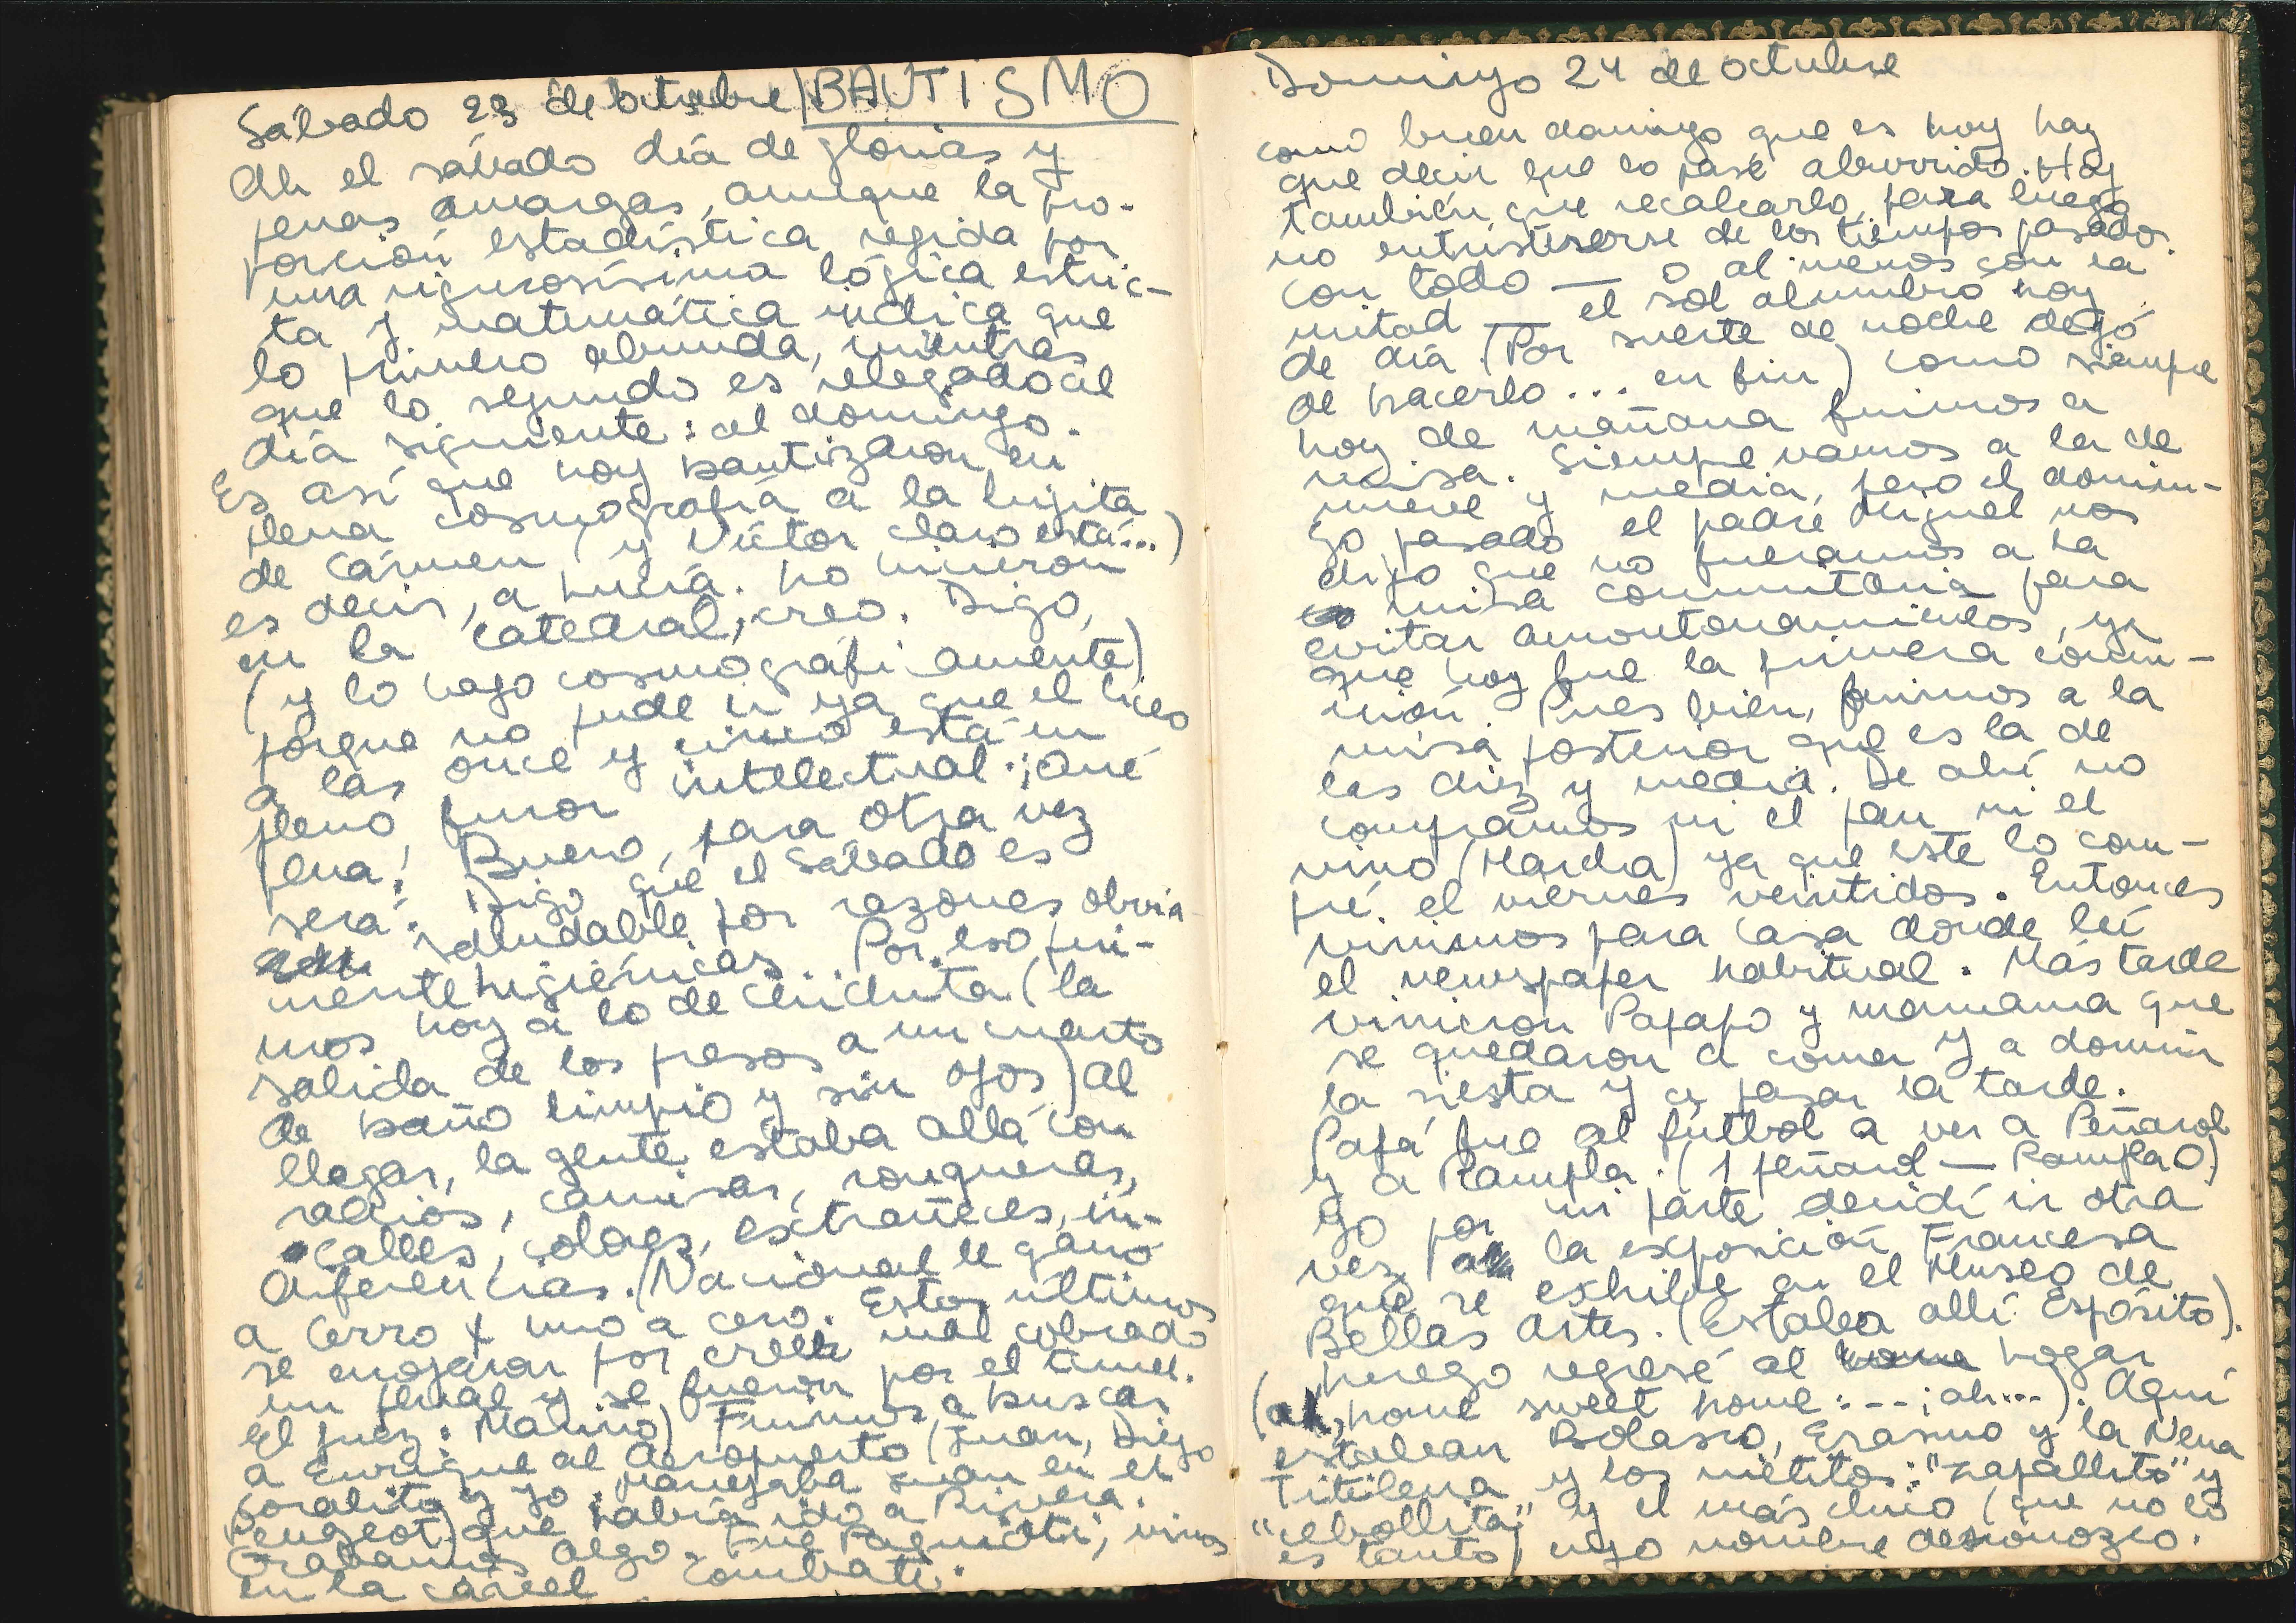 Sábado 23 de octubre / BAUTISMO
Ah el sábado día de glorias y
penas amargas, aunque la pro-
porción estadística regida por
una rigurosísima lógica estric-
ta y matemática indica que
lo primero abunda, mientras
que lo segundo es relegado al
día siguiente: al domingo.
Es así que hoy bautizaron en
plena cosmografía a la hijita
de Cármen (y Víctor claro está...)
es decir, a Lucía. Lo hicieron
en la Catedral, creo. Digo,
(y lo hago cosmográficamente)
porque no pude ir ya que el liceo
a las once y cinco está en
pleno furor intelectual. ¡Qué
pena! Bueno, para otra vez
será. Digo que el Sábado es
saludable por razones obvia-
mente higiénicas... Por eso fui-
mos hoy a lo de Chichita (la
salida de los presos a un cuarto
de baño limpio y sin ojos) Al
llegar, la gente estaba allá con
radios, camisas, ronqueras,
calles, colores, extrañeces, in-
diferencias. (Nacional le ganó
a Cerro uno a cero. Estos últimos
se enojaron por creer mal cobrado
un penal y se fueron por el tunel.
El juez: Marino) Fuimos a buscar
a Enrique al Aeropuerto (Juan, Diego
Soralito y yo. Manejaba Juan en el
Peugeot) que había ido a Rivera.
Grabamos algo. Fue Paguetti, vimos
en la cárcel Combate.
Domingo 24 de Octubre
como buen domingo que es hoy hay
que decir que lo pasé aburrido. Hay
también que recalcarlo, para luego
no entristeserse de los tiempos pasados.
Con todo — o al menos con la
mitad — el sol alumbró hoy
de día. (Por suerte de noche dejó
de hacerlo... en fin) como siempre
hoy de mañana fuimos a
misa. Siempre vamos a la de
nueve y media, pero el domin-
go pasado el padre Miguel nos
dijo que no fueramos a la
misa comunitaria para
evitar amontonamientos, ya
que hoy fue la primera comu-
nión. Pues bien, fuimos a la
misa posterior que es la de
las diez y media. De ahí no
compramos ni el pan ni el
vino (Marcha) ya que este lo com-
pré el viernes veintidos. Entonces
vinimos para casa donde leí
el newspaper habitual. Más tarde
vinieron Papapo y mamama que
se quedaron a comer y a dormir
la siesta y a pasar la tarde.
Papá fue al fútbol a ver a Peñarol
y a Rampla. (1 peñarol — Rampla 0)
Yo por mi parte decidí ir otra
vez a la exposición Francesa
que se exhibe en el Museo de
Bellas Artes. (Estaba allí Espósito).
Luego regresé al hogar
(ah, home sweet home: --¡ah...). Aquí
estaban Bolasio, Erasmo y la Nena
Titilena y los nietitos: "zapallito" y
"cebollita" y el más chico (que no lo
es tanto) cuyo nombre desconozco.